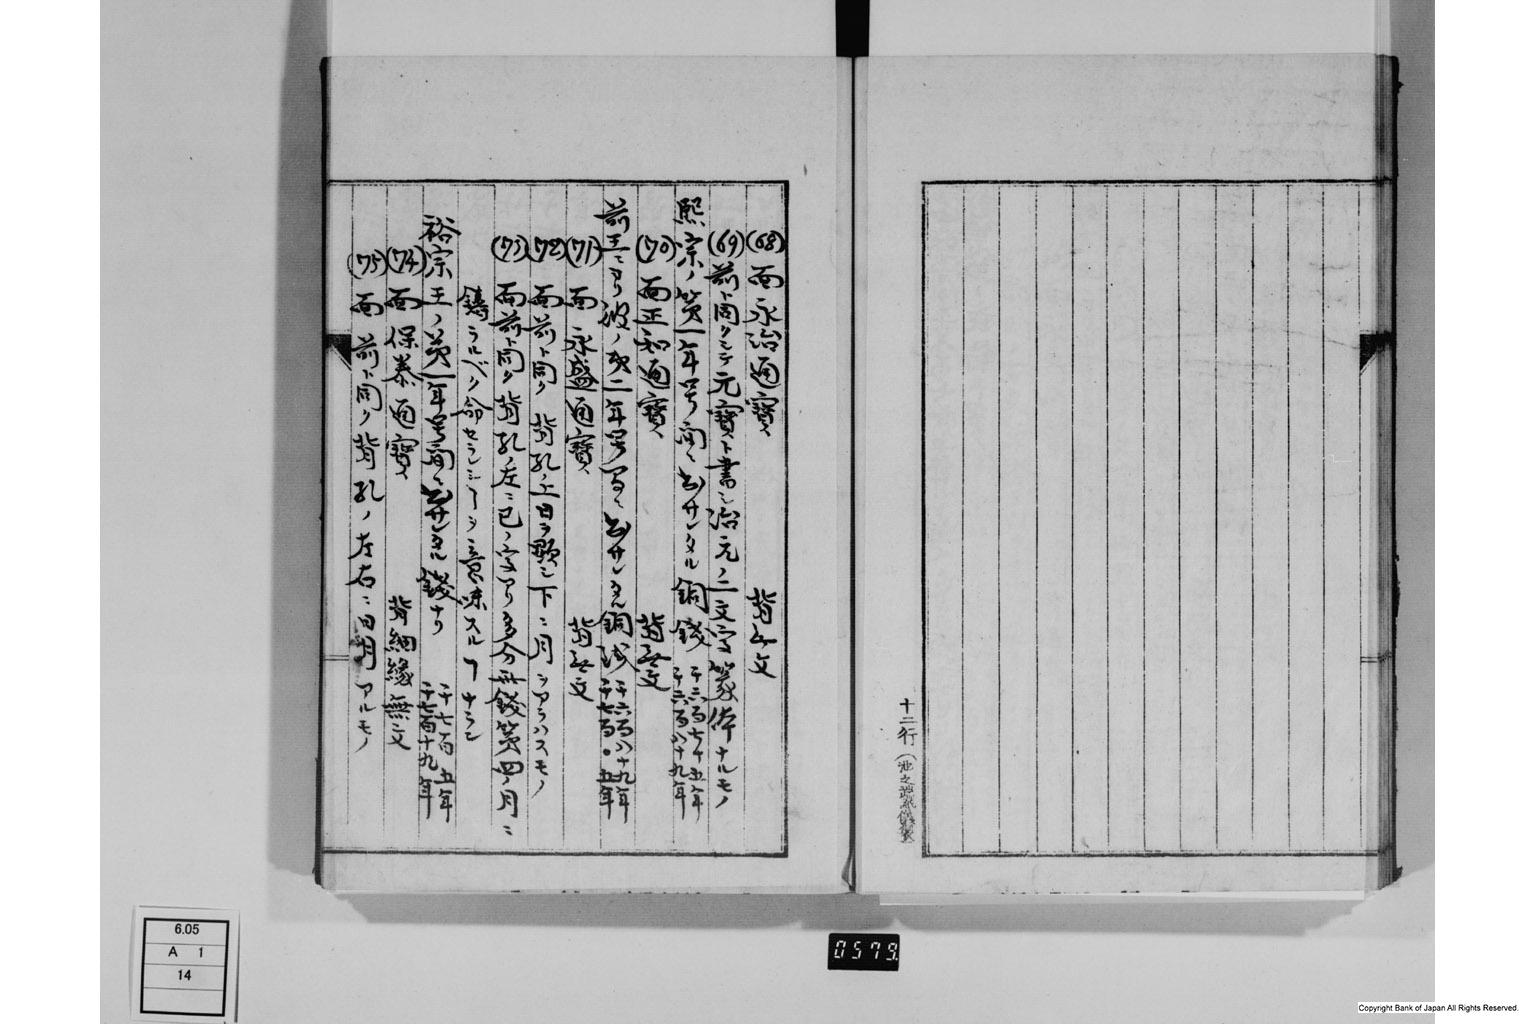 十二行
(68) 面 永治通寶、 背無文
(69) 前ト同クシテ元寶ト書シ治元ノ二文字篆体ナルモノ
熙宗ノ第一年号間ニ出サレタル銅銭 千六百七十五年 千六百八十九年
(70) 面正和通寶、 背無文
前王ニヨリ彼ノ第二年号間ニ出サレタル銅銭 千六百八十九年 千七百〇五年
(71) 面 永盛通寶、 背無文
(72) 面前ト同ク 背孔ノ上日ヲ顕シ下ニ月ヲアラハスモノ
(73) 面前ト同ク 背孔ノ左ニ已ノ字アリ多分此錢第四ノ月ニ
鑄ラルベク命セラレシヿヲ意味スルヿナラン
裕宗王ノ第一年号間ニ出サレタル錢ナリ 千七百五年 千七百十九年
(74) 面 保泰通寶、 背細縁無文
(75) 面 前ト同ク背孔ノ左右ニ日月アルモノ
6.05
A 1
14
0579
Copyright Bank of Japan All Rights Reserved.